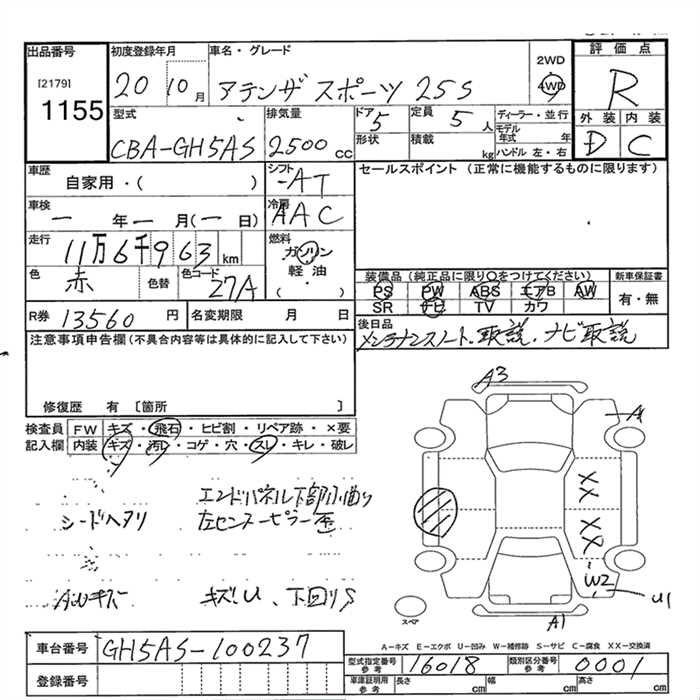 出品番号
[2179]
1155
初度登録年月
20 10月
車名・グレード
アテンザ スポーツ 25S
2WD
4WD
評価点
R
外装 内装
D C
型式
CBA-GH5AS
排気量
2500 cc
ドア 5
形状
定員 5 人
積載 kg
ディーラー・並行
モデル年式 年
ハンドル 左・右
車歴
自家用・( )
シフト
-AT
セールスポイント (正常に機能するものに限ります)
車検
一 年 一 月(一 日)
冷房
AAC
走行
11万6千963 km
燃料
ガソリン
軽・油
( )
色
赤
色替
色コード
27A
装備品(純正品に限り○をつけてください)
PS PW ABS エアB AW
SR ナビ TV カワ
新車保証書
有・無
R券 13560 円
名変期限 月 日
後日品
メンテナンスノート、取説、ナビ取説
注意事項申告欄(不具合内容等は具体的に記入して下さい)
修復歴 有 〔箇所 〕
検査員記入欄
FW キズ・飛石・ヒビ割・リペア跡・×要
内装 キズ・汚レ・コゲ・穴・スレ・キレ・破レ
シートヘタリ
エンドパネル下部小曲り
左センターピラー歪
AWキズ
キズ、U、下回りS
A3
A1
XX
XX
W2
U1
A1
スペア
A-キズ E-エクボ U-凹み W-補修跡 S-サビ C-腐食 XX-交換済
車台番号 GH5AS-100237
登録番号
型式指定番号参考 16018
類別区分番号参考 0001
車庫証明用参考 長さ cm 幅 cm 高さ cm